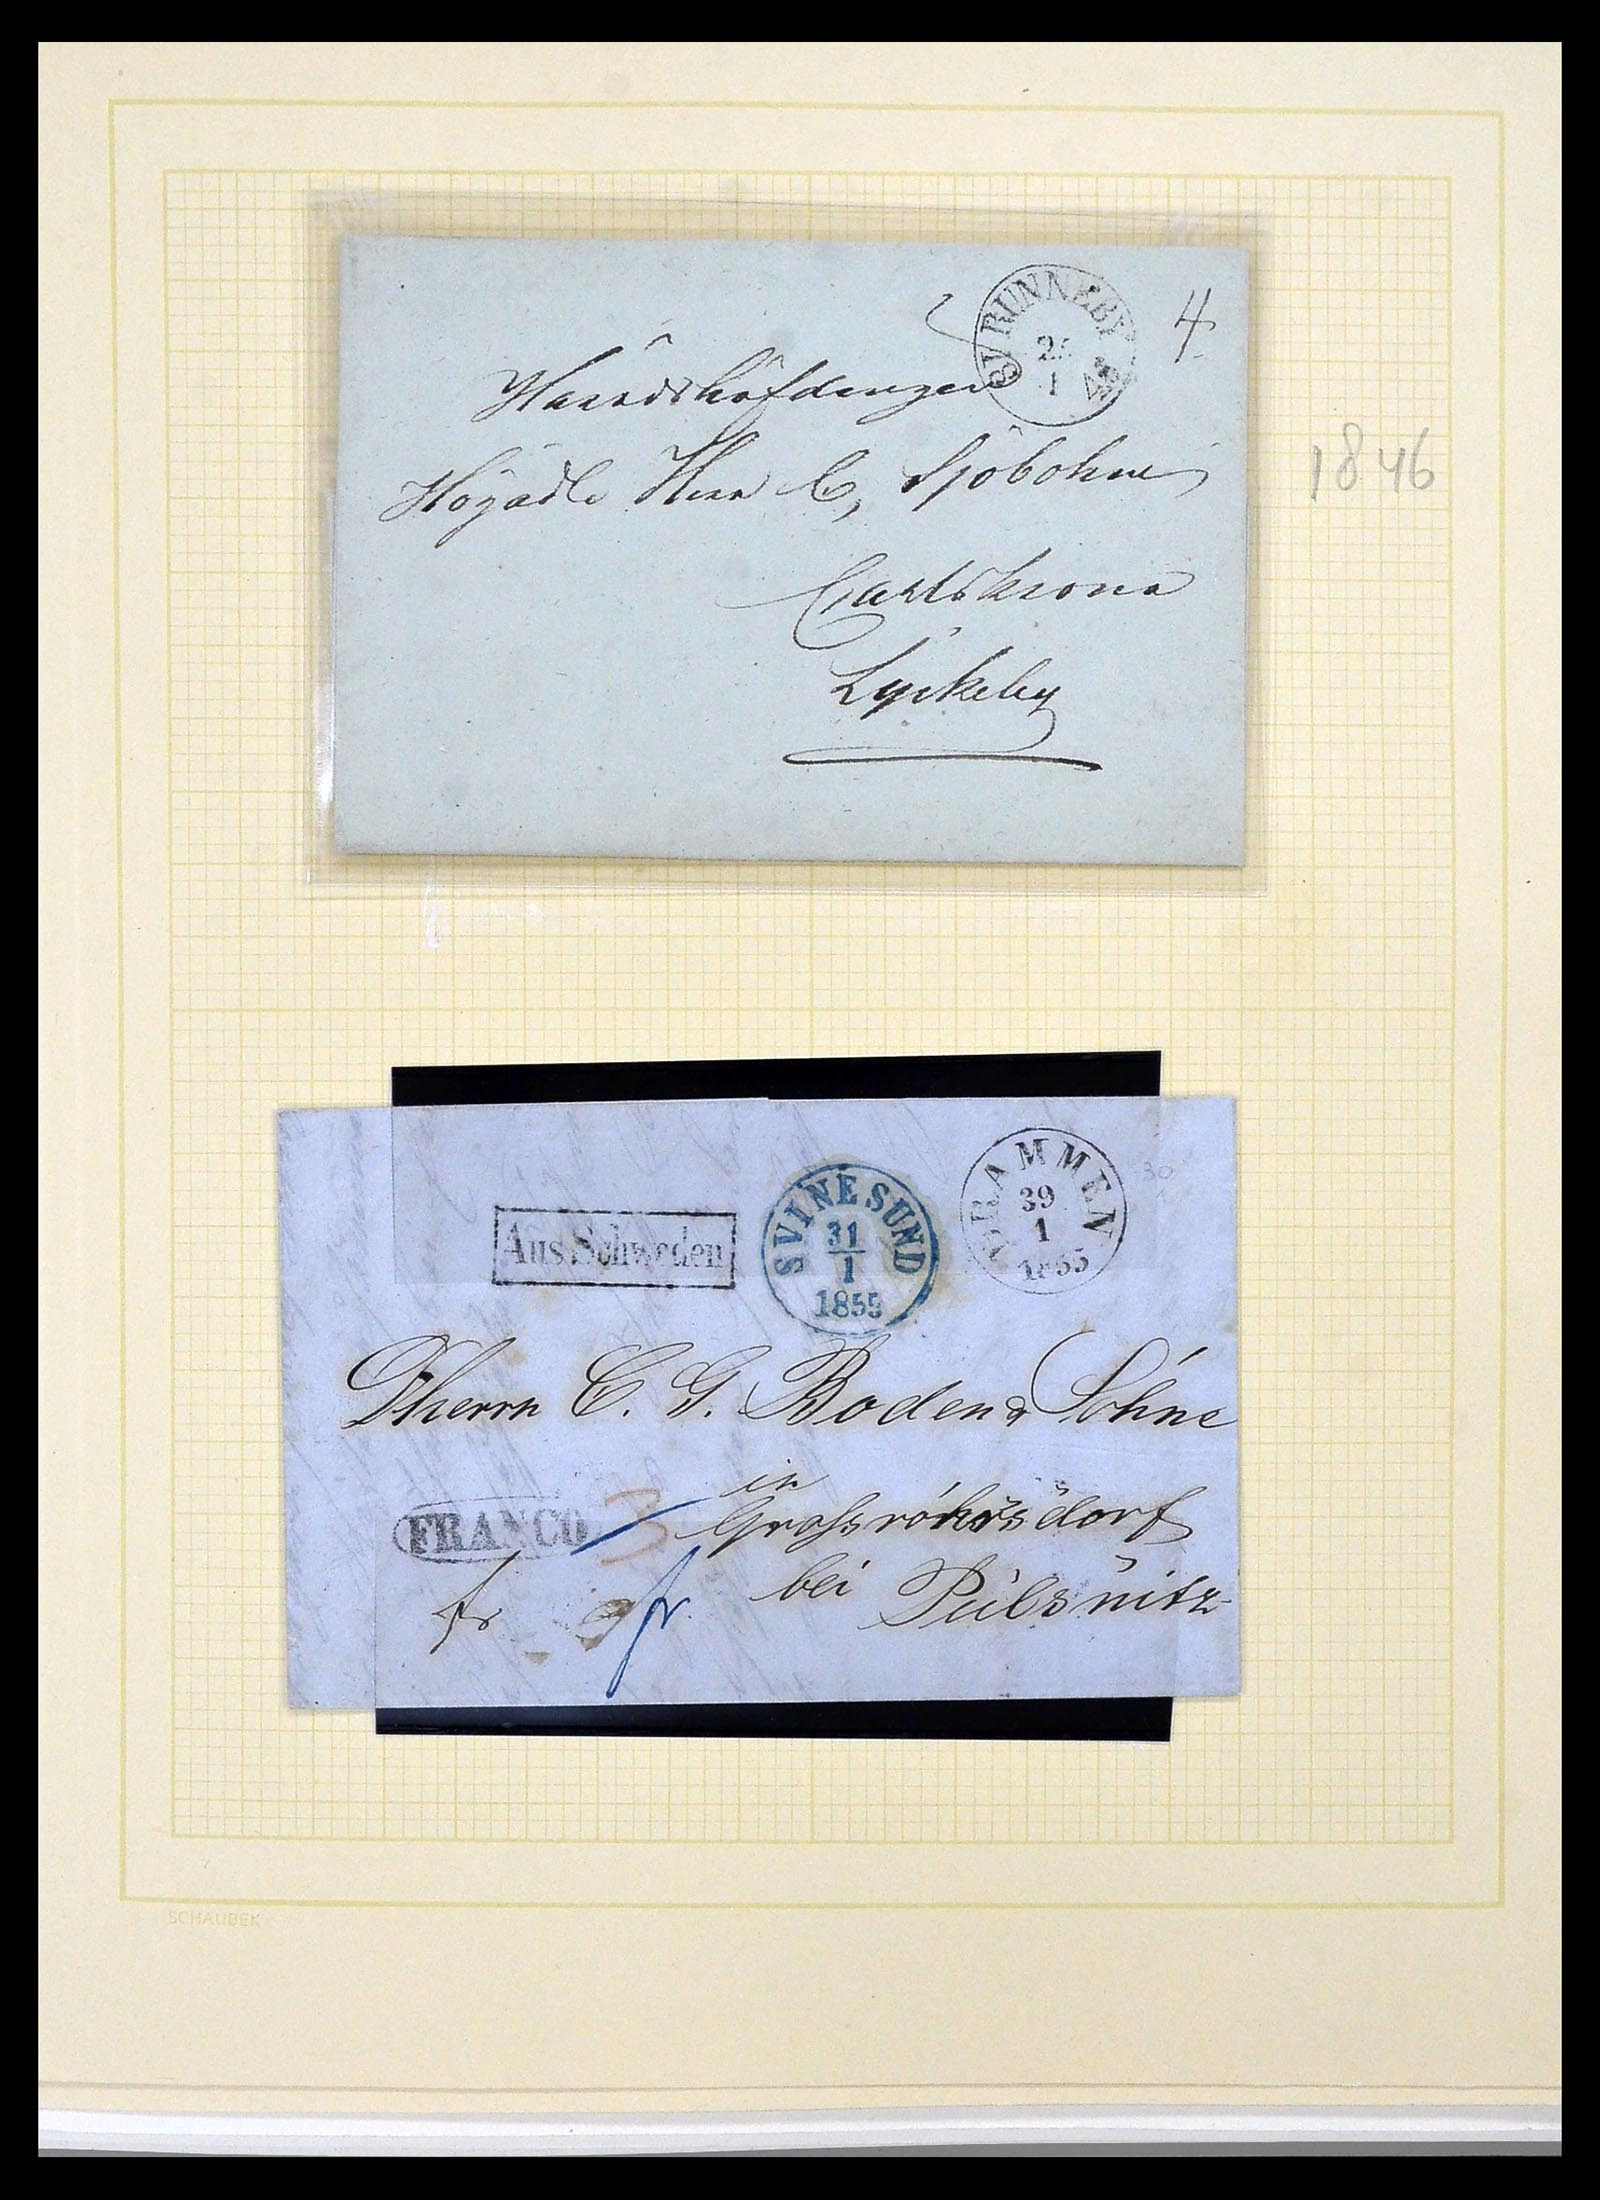 RUNNEBY
1
4
1846
Häradshöfdingen
Högädle Herr C, Sjöbohm
Carlskrona
Lyckeby
DRAMMEN
39
1
1855
30
SVINESUND
31
1
1855
Aus Schweden
Herrn C. G. Boden & Söhne
in
FRANCO
3
Grossröhrsdorf
bei Pülsnitz
fr
fr.
SCHAUBEK